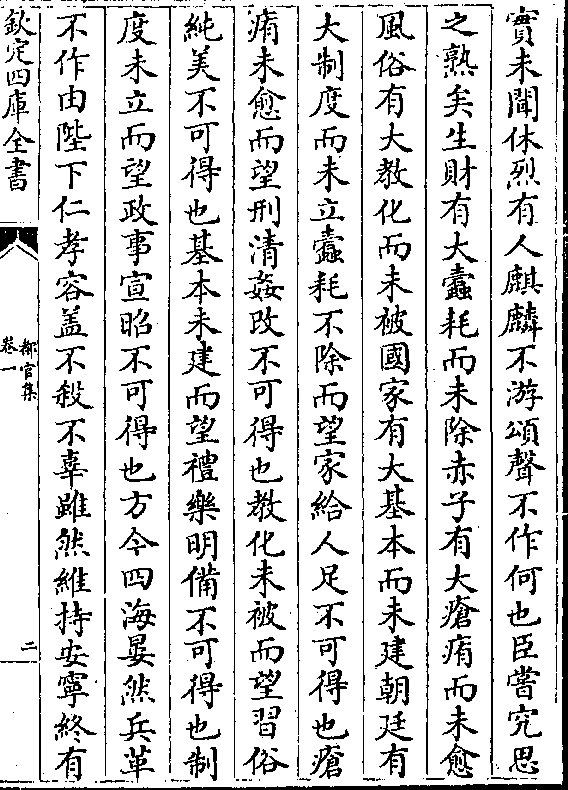 實未聞休烈有人麒麟不游頌聲不作何也臣嘗究思
之熟矣生財有大蠧耗而未除赤子有大瘡痏而未愈
風俗有大教化而未被國家有大基本而未建朝廷有
大制度而未立蠧耗不除而望家給人足不可得也瘡
痏未愈而望刑清姦改不可得也教化未被而望習俗
純美不可得也基本未建而望禮樂明備不可得也制
度未立而望政事宣昭不可得也方今四海晏然兵革
不作由陛下仁孝容盖不殺不辜雖然維持安寧終有
欽定四庫全書
都官集
卷一
二